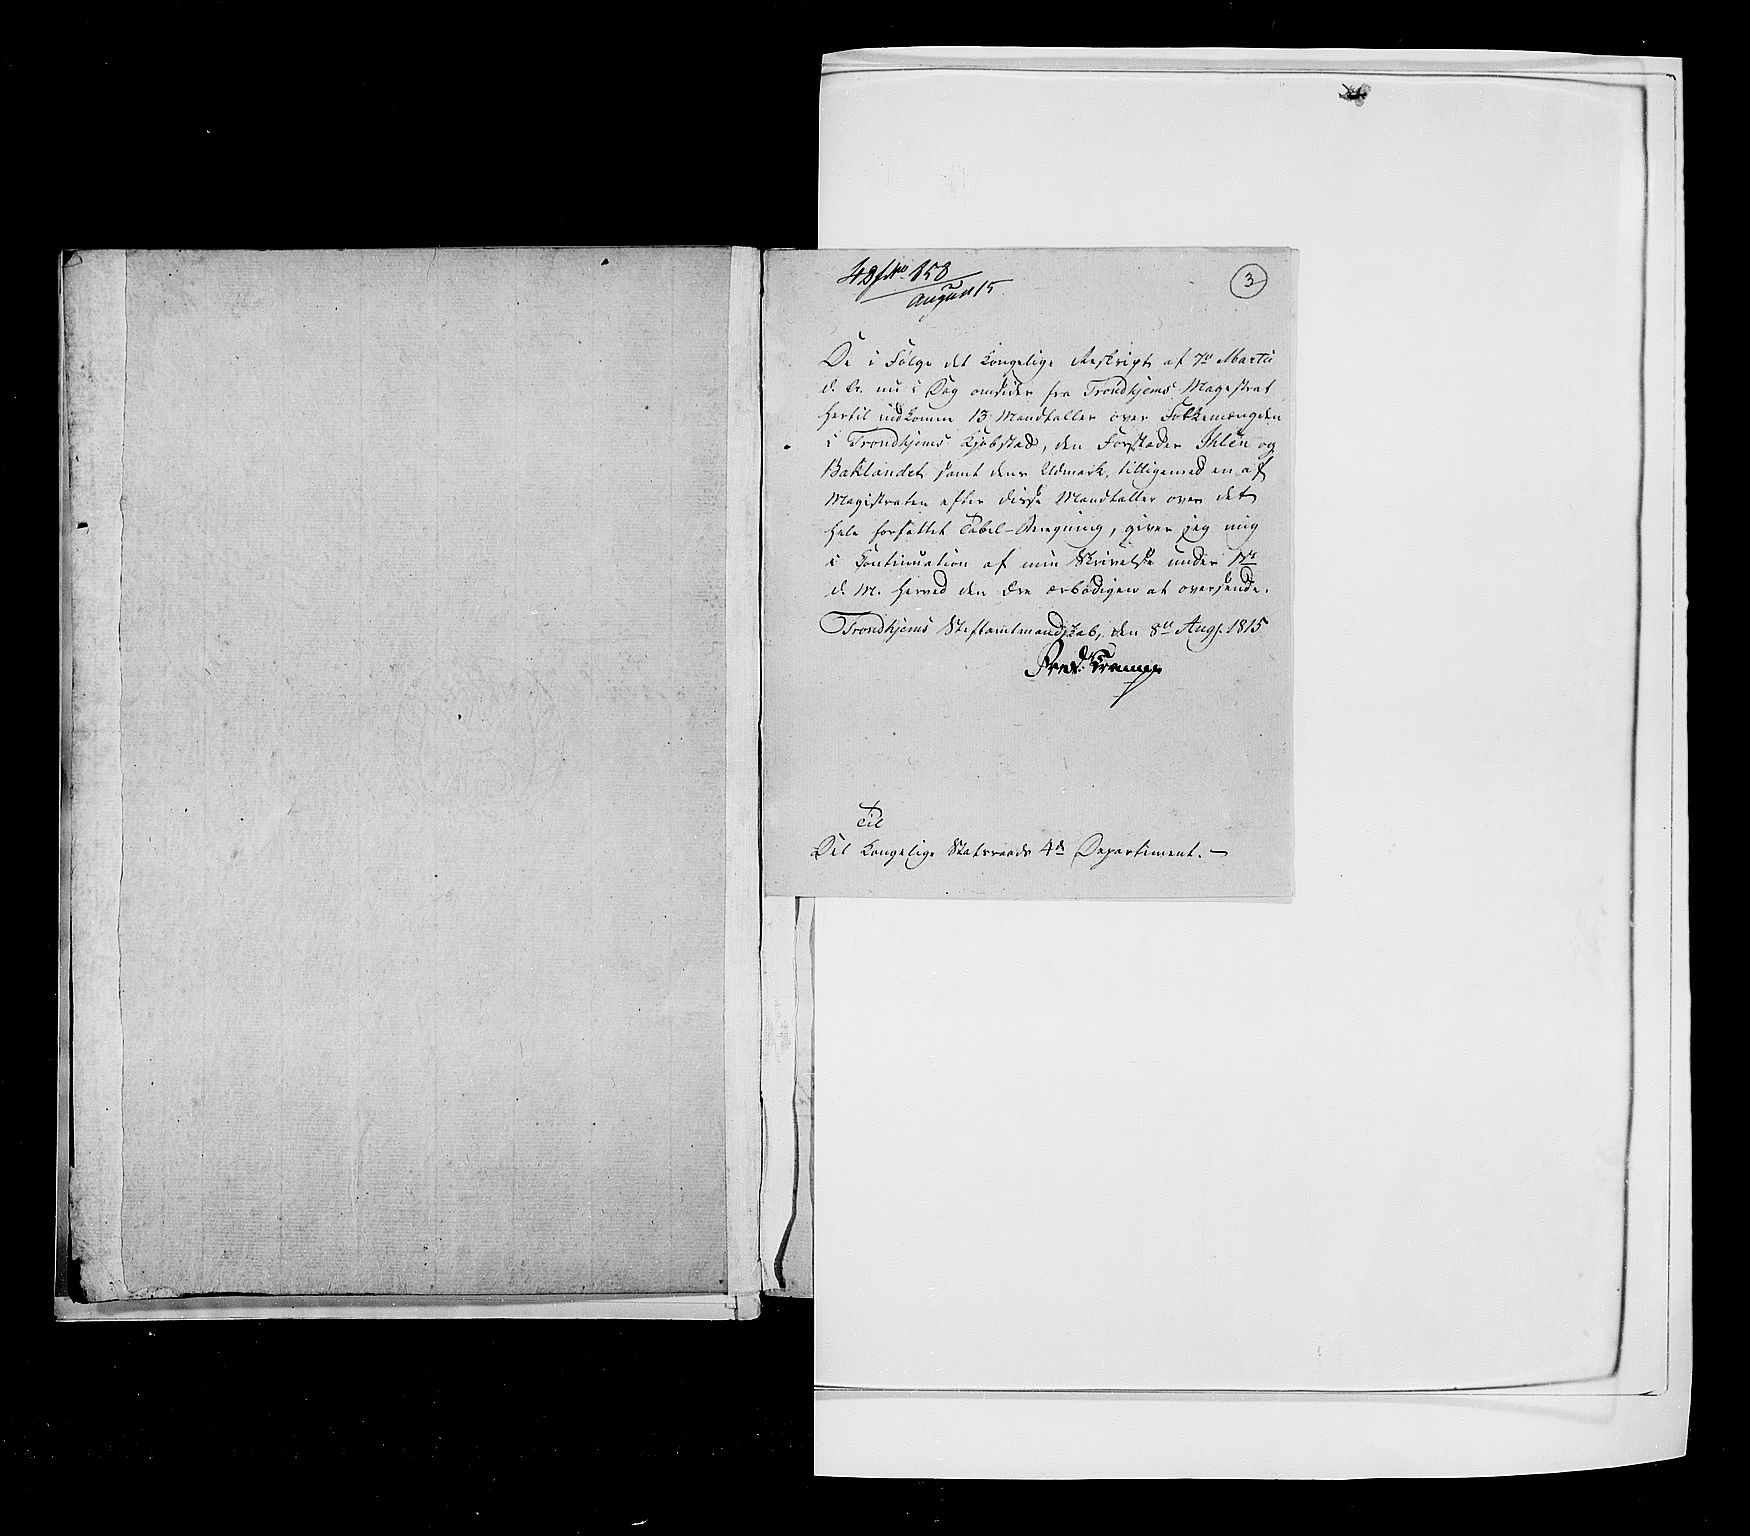 858
August 15
3
De i Følge det Kongelige Reskript af 7de Martii
d. A. nu i Dag omsider fra Trondhjems Magestrat
hertil indkomne 13 Mandtaller over Folkemængden
i Trondhjems Kjøbstad, den Forstæder Ihlen og
Baklandet samt dens Udmark, tilligemed en af
Magistraten efter disse Mandtaller over det
hele forfattet Tabel-Beregning, giver jeg mig
i Continuation af min Skrivelse under 1ste
d. M. herved den Ære ærbødigen at oversende.
Trondhjems Stiftamtmandskab, den 8de Augs. 1815
Fred.
Til
Det Kongelige Statsraads 4de Departiment. —